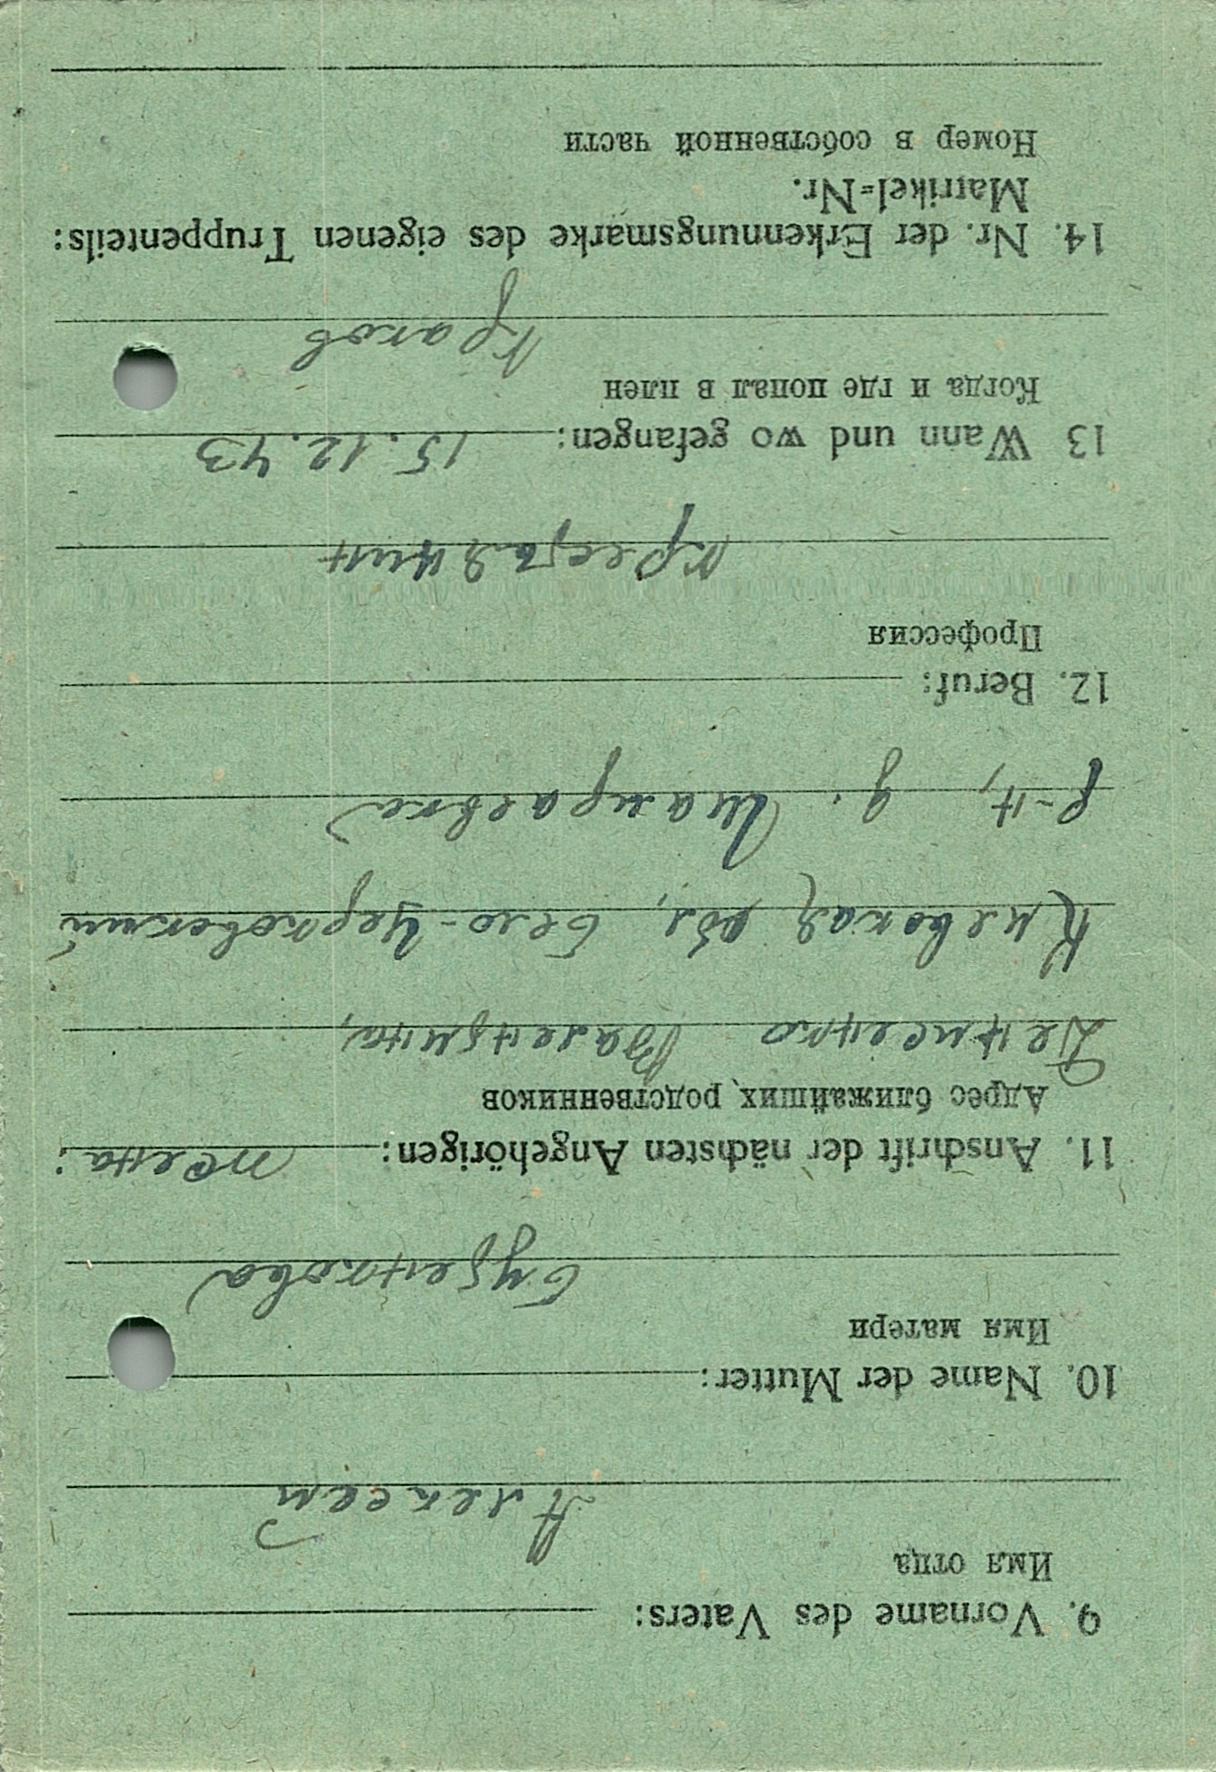 9. Vorname des Vaters:
Имя отца
Алексей
10. Name der Mutter:
Имя матери
11. Anschrift der nächsten Angehörigen: жена:
Адрес ближайших родственников
Денисенко Валентина,
Киевская обл, Бело-Церковский
р-н, д. Шамраевка
12. Beruf:
Профессия
крестьянин
13 Wann und wo gefangen: 15.12.43
Когда и где попал в плен
Краков
14. Nr. der Erkennungsmarke des eigenen Truppenteils:
Matrikel=Nr.
Номер в собственной части